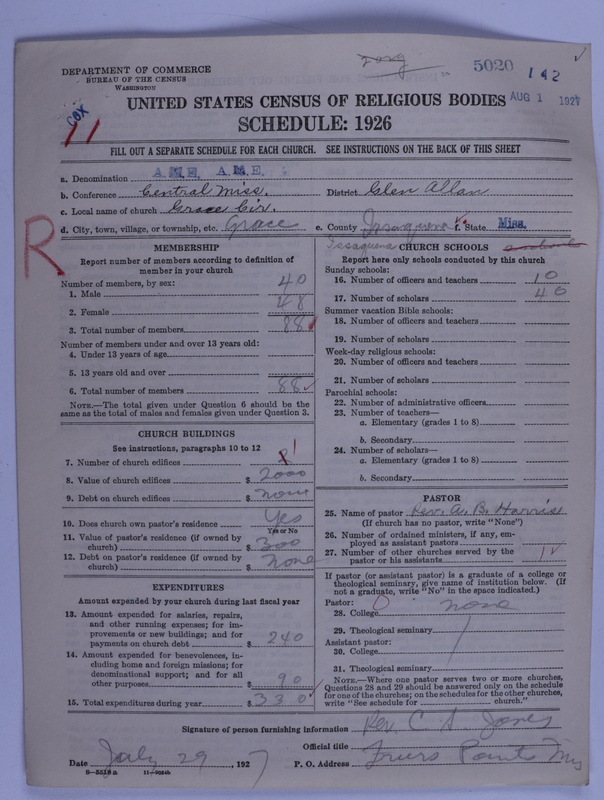 5020
142
DEPARTMENT OF COMMERCE
BUREAU OF THE CENSUS
WASHINGTON
COX
11
UNITED STATES CENSUS OF RELIGIOUS BODIES
AUG 1 1927
SCHEDULE: 1926
FILL OUT A SEPARATE SCHEDULE FOR EACH CHURCH. SEE INSTRUCTIONS ON THE BACK OF THIS SHEET
a. Denomination A.M.E. A.M.E.
b. Conference Central Miss. District Glen Allan
c. Local name of church Grace Cir.
d. City, town, village, or township, etc. Grace e. County Issaquena f. State Miss.
R.
Issaquena
MEMBERSHIP
Report number of members according to definition of member in your church
Number of members, by sex:
1. Male 40
2. Female 48
3. Total number of members 88
Number of members under and over 13 years old:
4. Under 13 years of age
5. 13 years old and over
6. Total number of members 88
NOTE.—The total given under Question 6 should be the same as the total of males and females given under Question 3.
CHURCH BUILDINGS
See instructions, paragraphs 10 to 12
7. Number of church edifices 1
8. Value of church edifices $ 2000
9. Debt on church edifices $ none
10. Does church own pastor's residence Yes
Yes or No
11. Value of pastor's residence (if owned by church) $ 300
12. Debt on pastor's residence (if owned by church) $ none
EXPENDITURES
Amount expended by your church during last fiscal year
13. Amount expended for salaries, repairs, and other running expenses; for improvements or new buildings; and for payments on church debt $ 240
14. Amount expended for benevolences, including home and foreign missions; for denominational support; and for all other purposes $ 90
15. Total expenditures during year $ 330
CHURCH SCHOOLS
Report here only schools conducted by this church
Sunday schools:
16. Number of officers and teachers 10
17. Number of scholars 40
Summer vacation Bible schools:
18. Number of officers and teachers
19. Number of scholars
Week-day religious schools:
20. Number of officers and teachers
21. Number of scholars
Parochial schools:
22. Number of administrative officers
23. Number of teachers—
a. Elementary (grades 1 to 8)
b. Secondary
24. Number of scholars—
a. Elementary (grades 1 to 8)
b. Secondary
PASTOR
25. Name of pastor Rev. A. B. Harris
(If church has no pastor, write "None")
26. Number of ordained ministers, if any, employed as assistant pastors
27. Number of other churches served by the pastor or his assistants 1
If pastor (or assistant pastor) is a graduate of a college or theological seminary, give name of institution below. (If not a graduate, write "No" in the space indicated.)
Pastor:
28. College none
29. Theological seminary
Assistant pastor:
30. College
31. Theological seminary
NOTE.—Where one pastor serves two or more churches, Questions 28 and 29 should be answered only on the schedule for one of the churches; on the schedules for the other churches, write "See schedule for church."
Signature of person furnishing information Rev. C. A. Jones
Official title
Date July 29, 1927 P. O. Address Friars Point Miss
8-551a 11-9034b